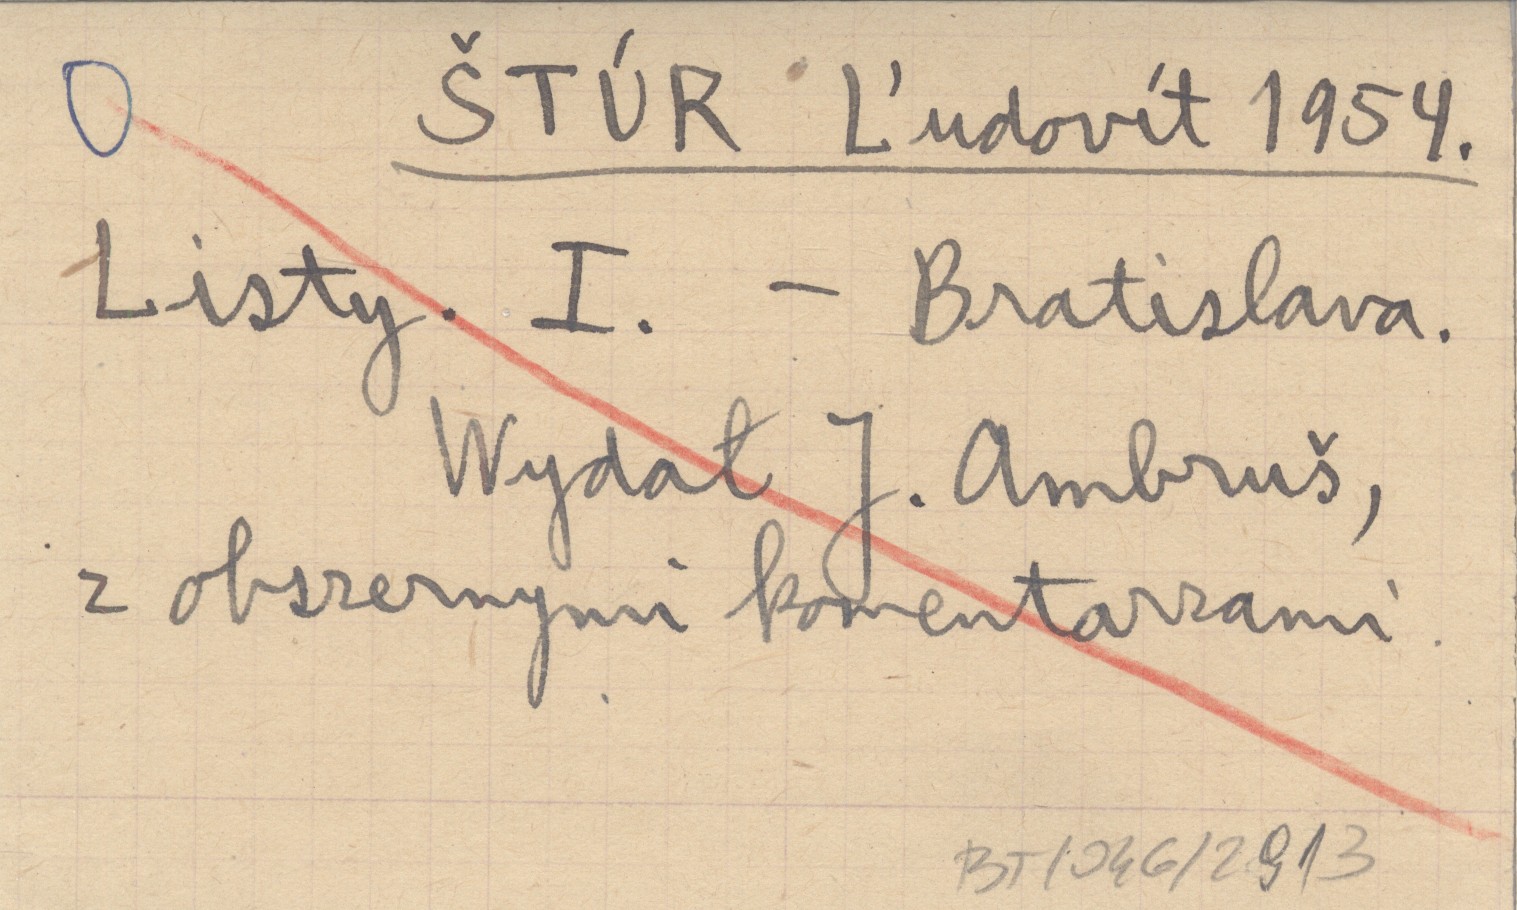 ŠTÚR Ľudovít 1954.
Listy. I. – Bratislava.
Wydał J. Ambruš,
z obszernymi komentarzami.
BT/046/2913